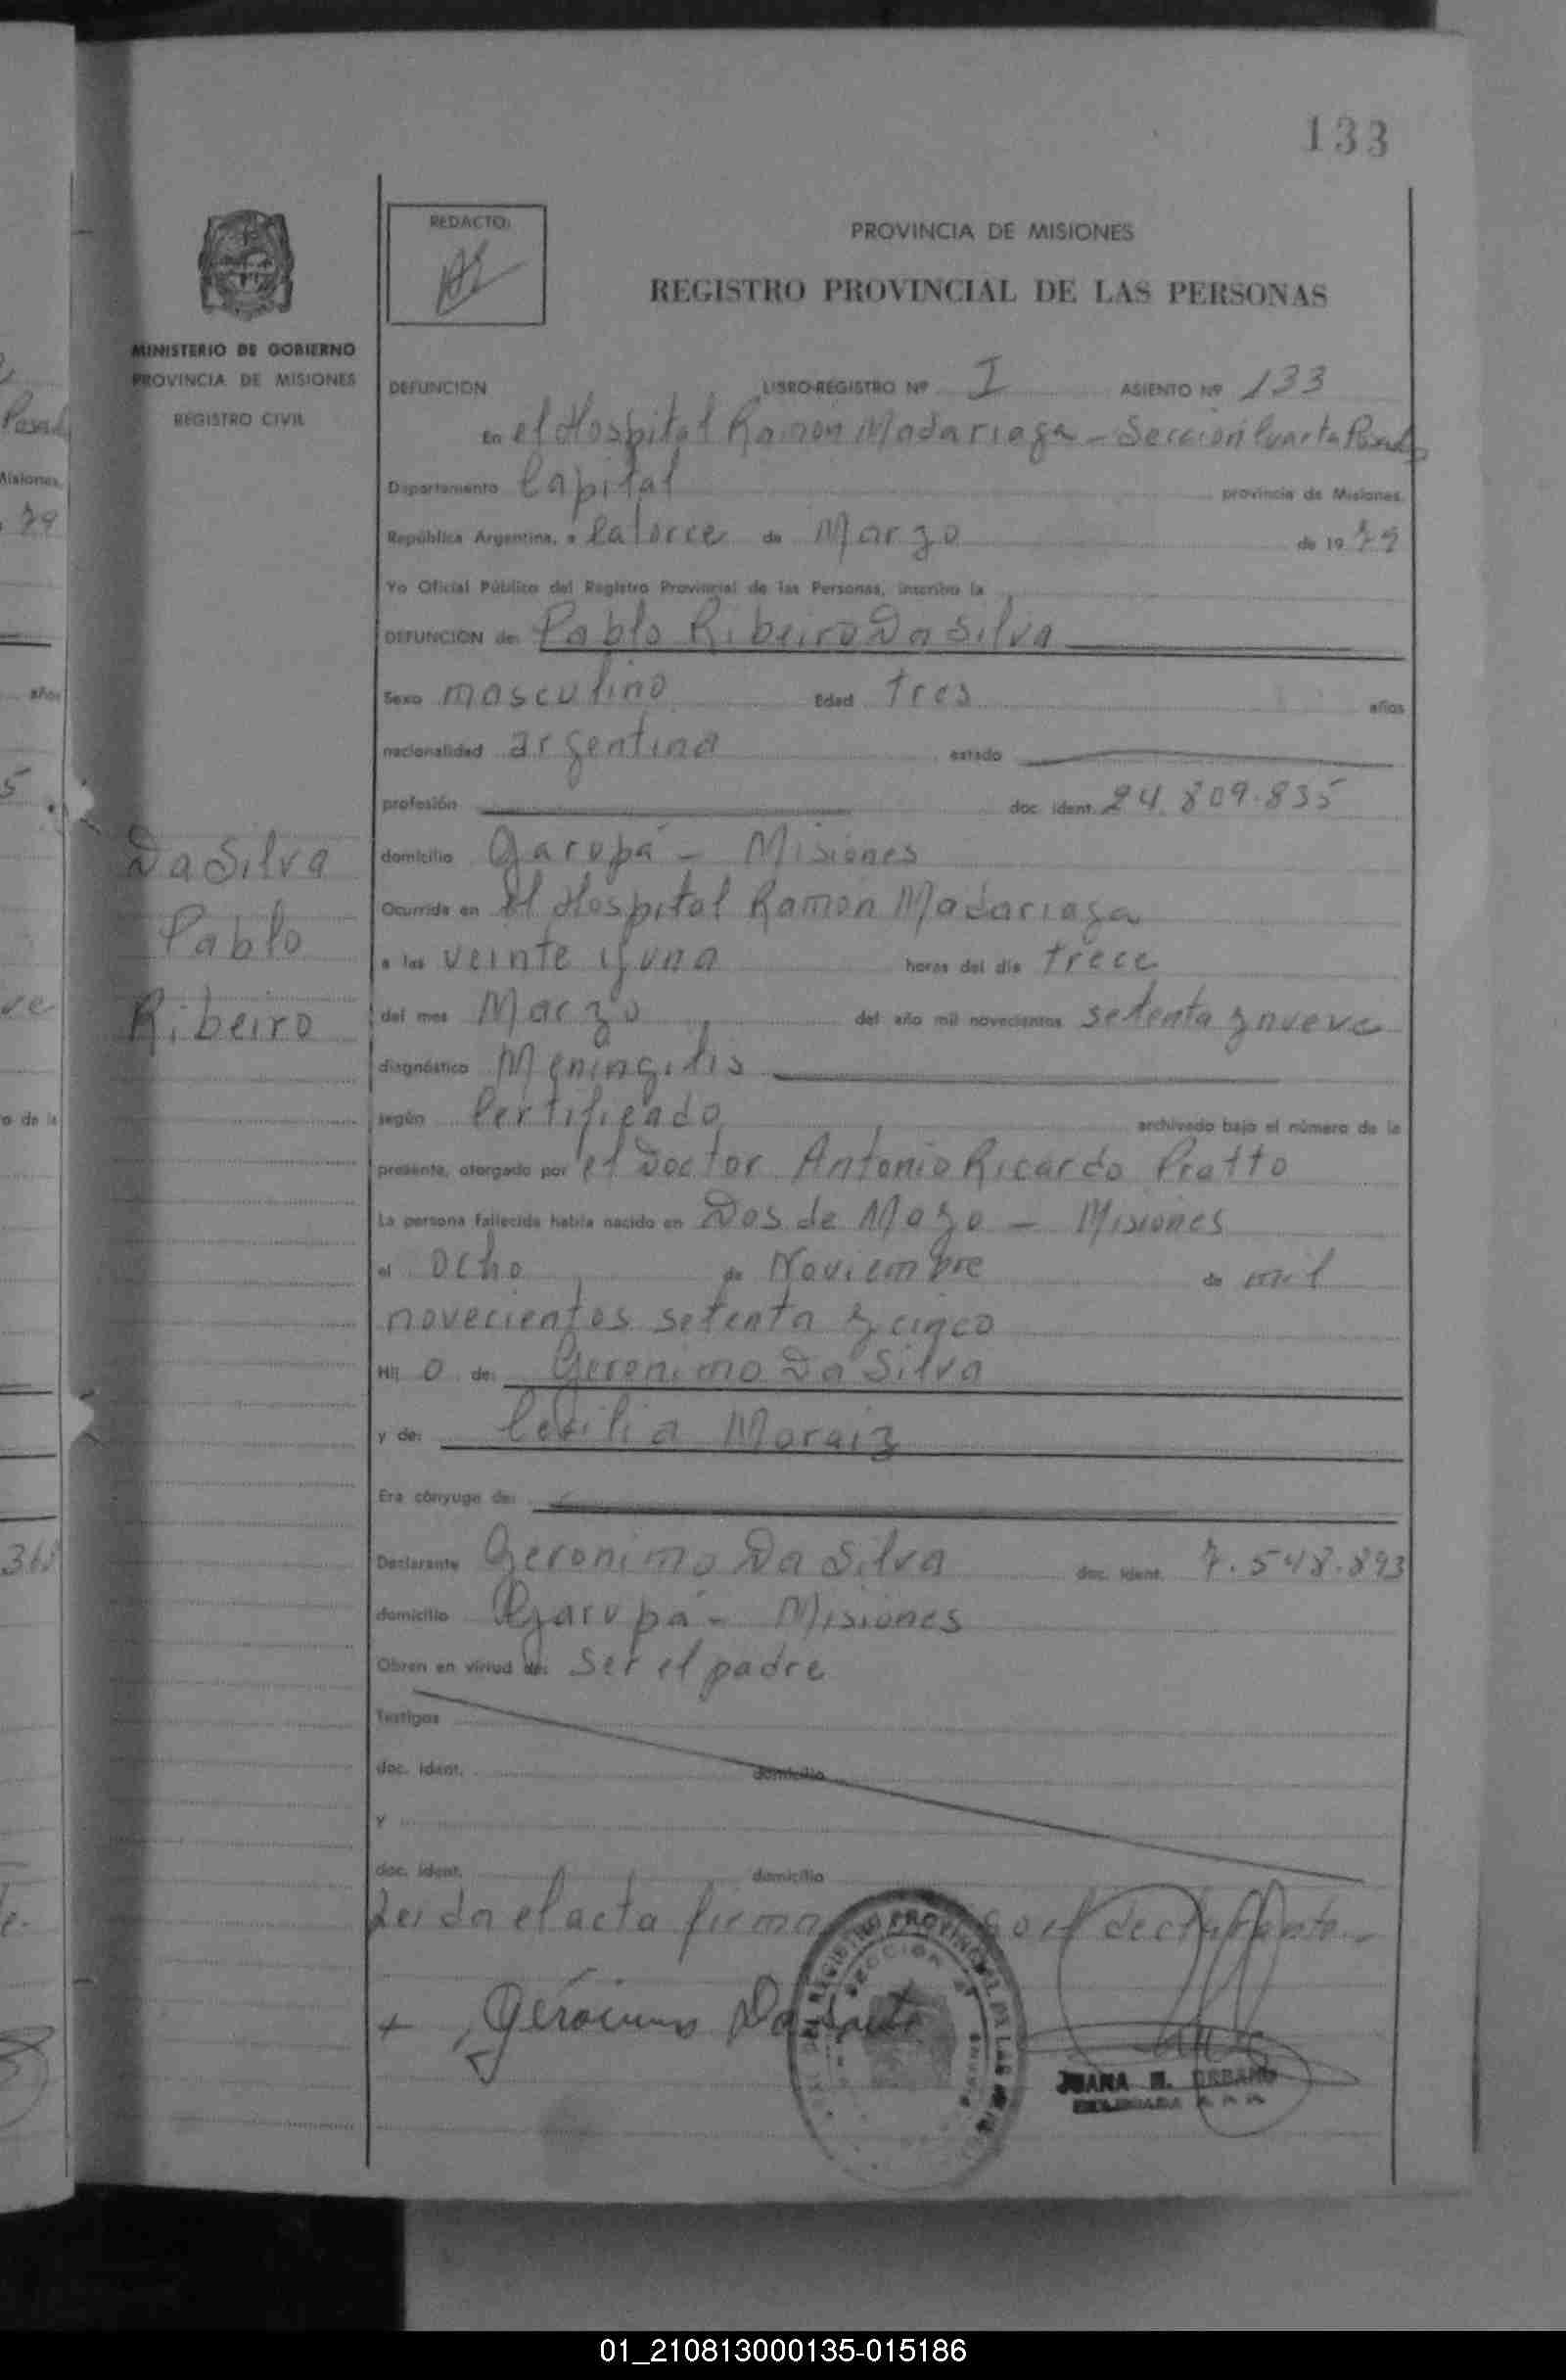 133
REDACTO:
PROVINCIA DE MISIONES
REGISTRO PROVINCIAL DE LAS PERSONAS
MINISTERIO DE GOBIERNO
PROVINCIA DE MISIONES
REGISTRO CIVIL
DEFUNCION LIBRO-REGISTRO Nº I ASIENTO Nº 133
En el Hospital Ramón Madariaga - Sección Cuarta Posadas
Departamento Capital provincia de Misiones.
República Argentina, a Catorce de Marzo de 19 79
Yo Oficial Público del Registro Provincial de las Personas, inscribo la
DEFUNCION de: Pablo Ribeiro Da Silva
Sexo masculino Edad tres años
nacionalidad argentina estado
profesión doc. ident. 24.809.835
Da Silva
Pablo
Ribeiro
domicilio Garupá - Misiones
Ocurrida en el Hospital Ramón Madariaga
a las veinte y una horas del día trece
del mes Marzo del año mil novecientos setenta y nueve
diagnóstico Meningitis
según Certificado archivado bajo el número de la
presente, otorgado por el Doctor Antonio Ricardo Pratto
La persona fallecida había nacido en Dos de Mayo - Misiones
el ocho de Noviembre de mil
novecientos setenta y cinco
Hij o de: Geronimo Da Silva
y de: Cecilia Moraiz
Era cónyuge de:
Declarante Geronimo Da Silva doc. ident. 7.548.893
domicilio Garupá - Misiones
Obran en virtud de: Ser el padre
Testigos
doc. ident. domicilio
Y
doc. ident. domicilio
Leida el acta firma el declarante.-
REGISTRO PROVINCIAL DE LAS
SECCION
JUANA E. URBANO
DELEGADA
01_210813000135-015186